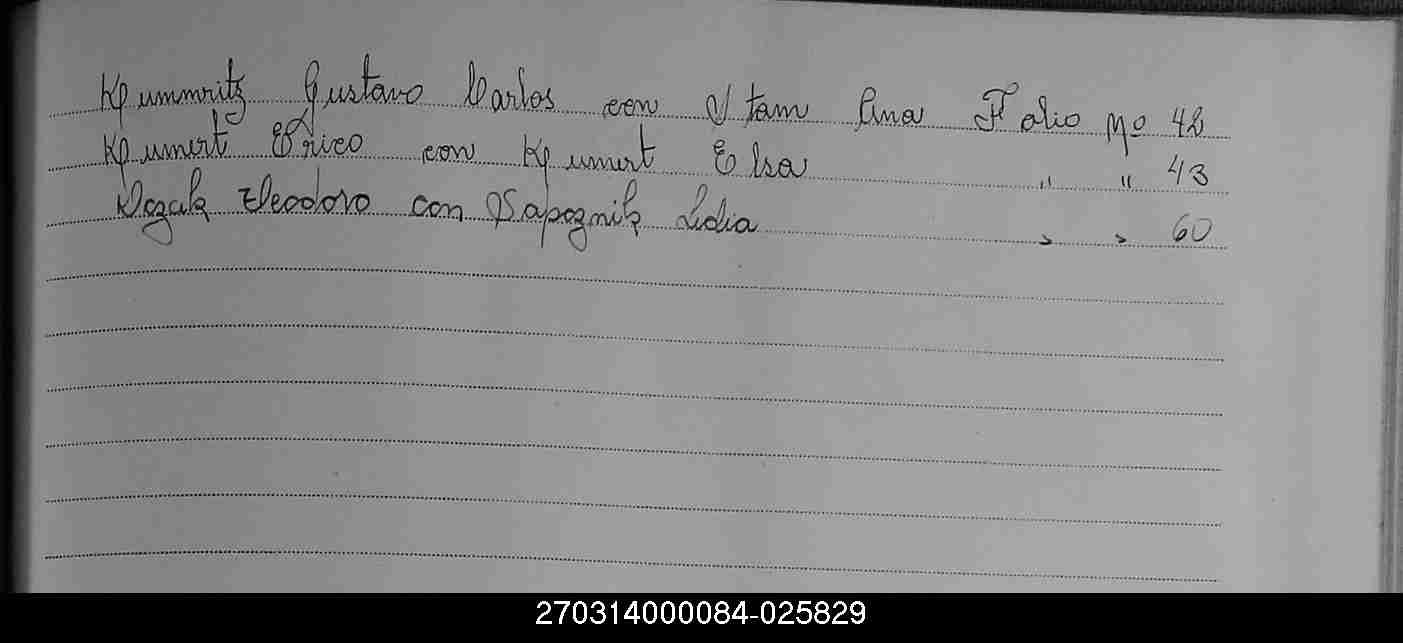 Krummritz Gustavo Carlos con Stam Ana Folio Nº 42
Kumert Erico con Kumert Elsa " " 43
Teodoro con Sapoznik Lidia " " 60
270314000084-025829